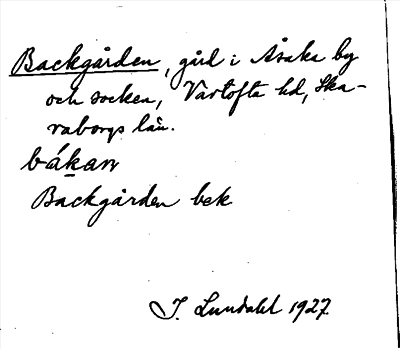 Backgården, gård i Åsaka by
och socken, Vartofta hd, Ska-
raborgs län.
bákan
Backgården bek
J. Lundahl 1927